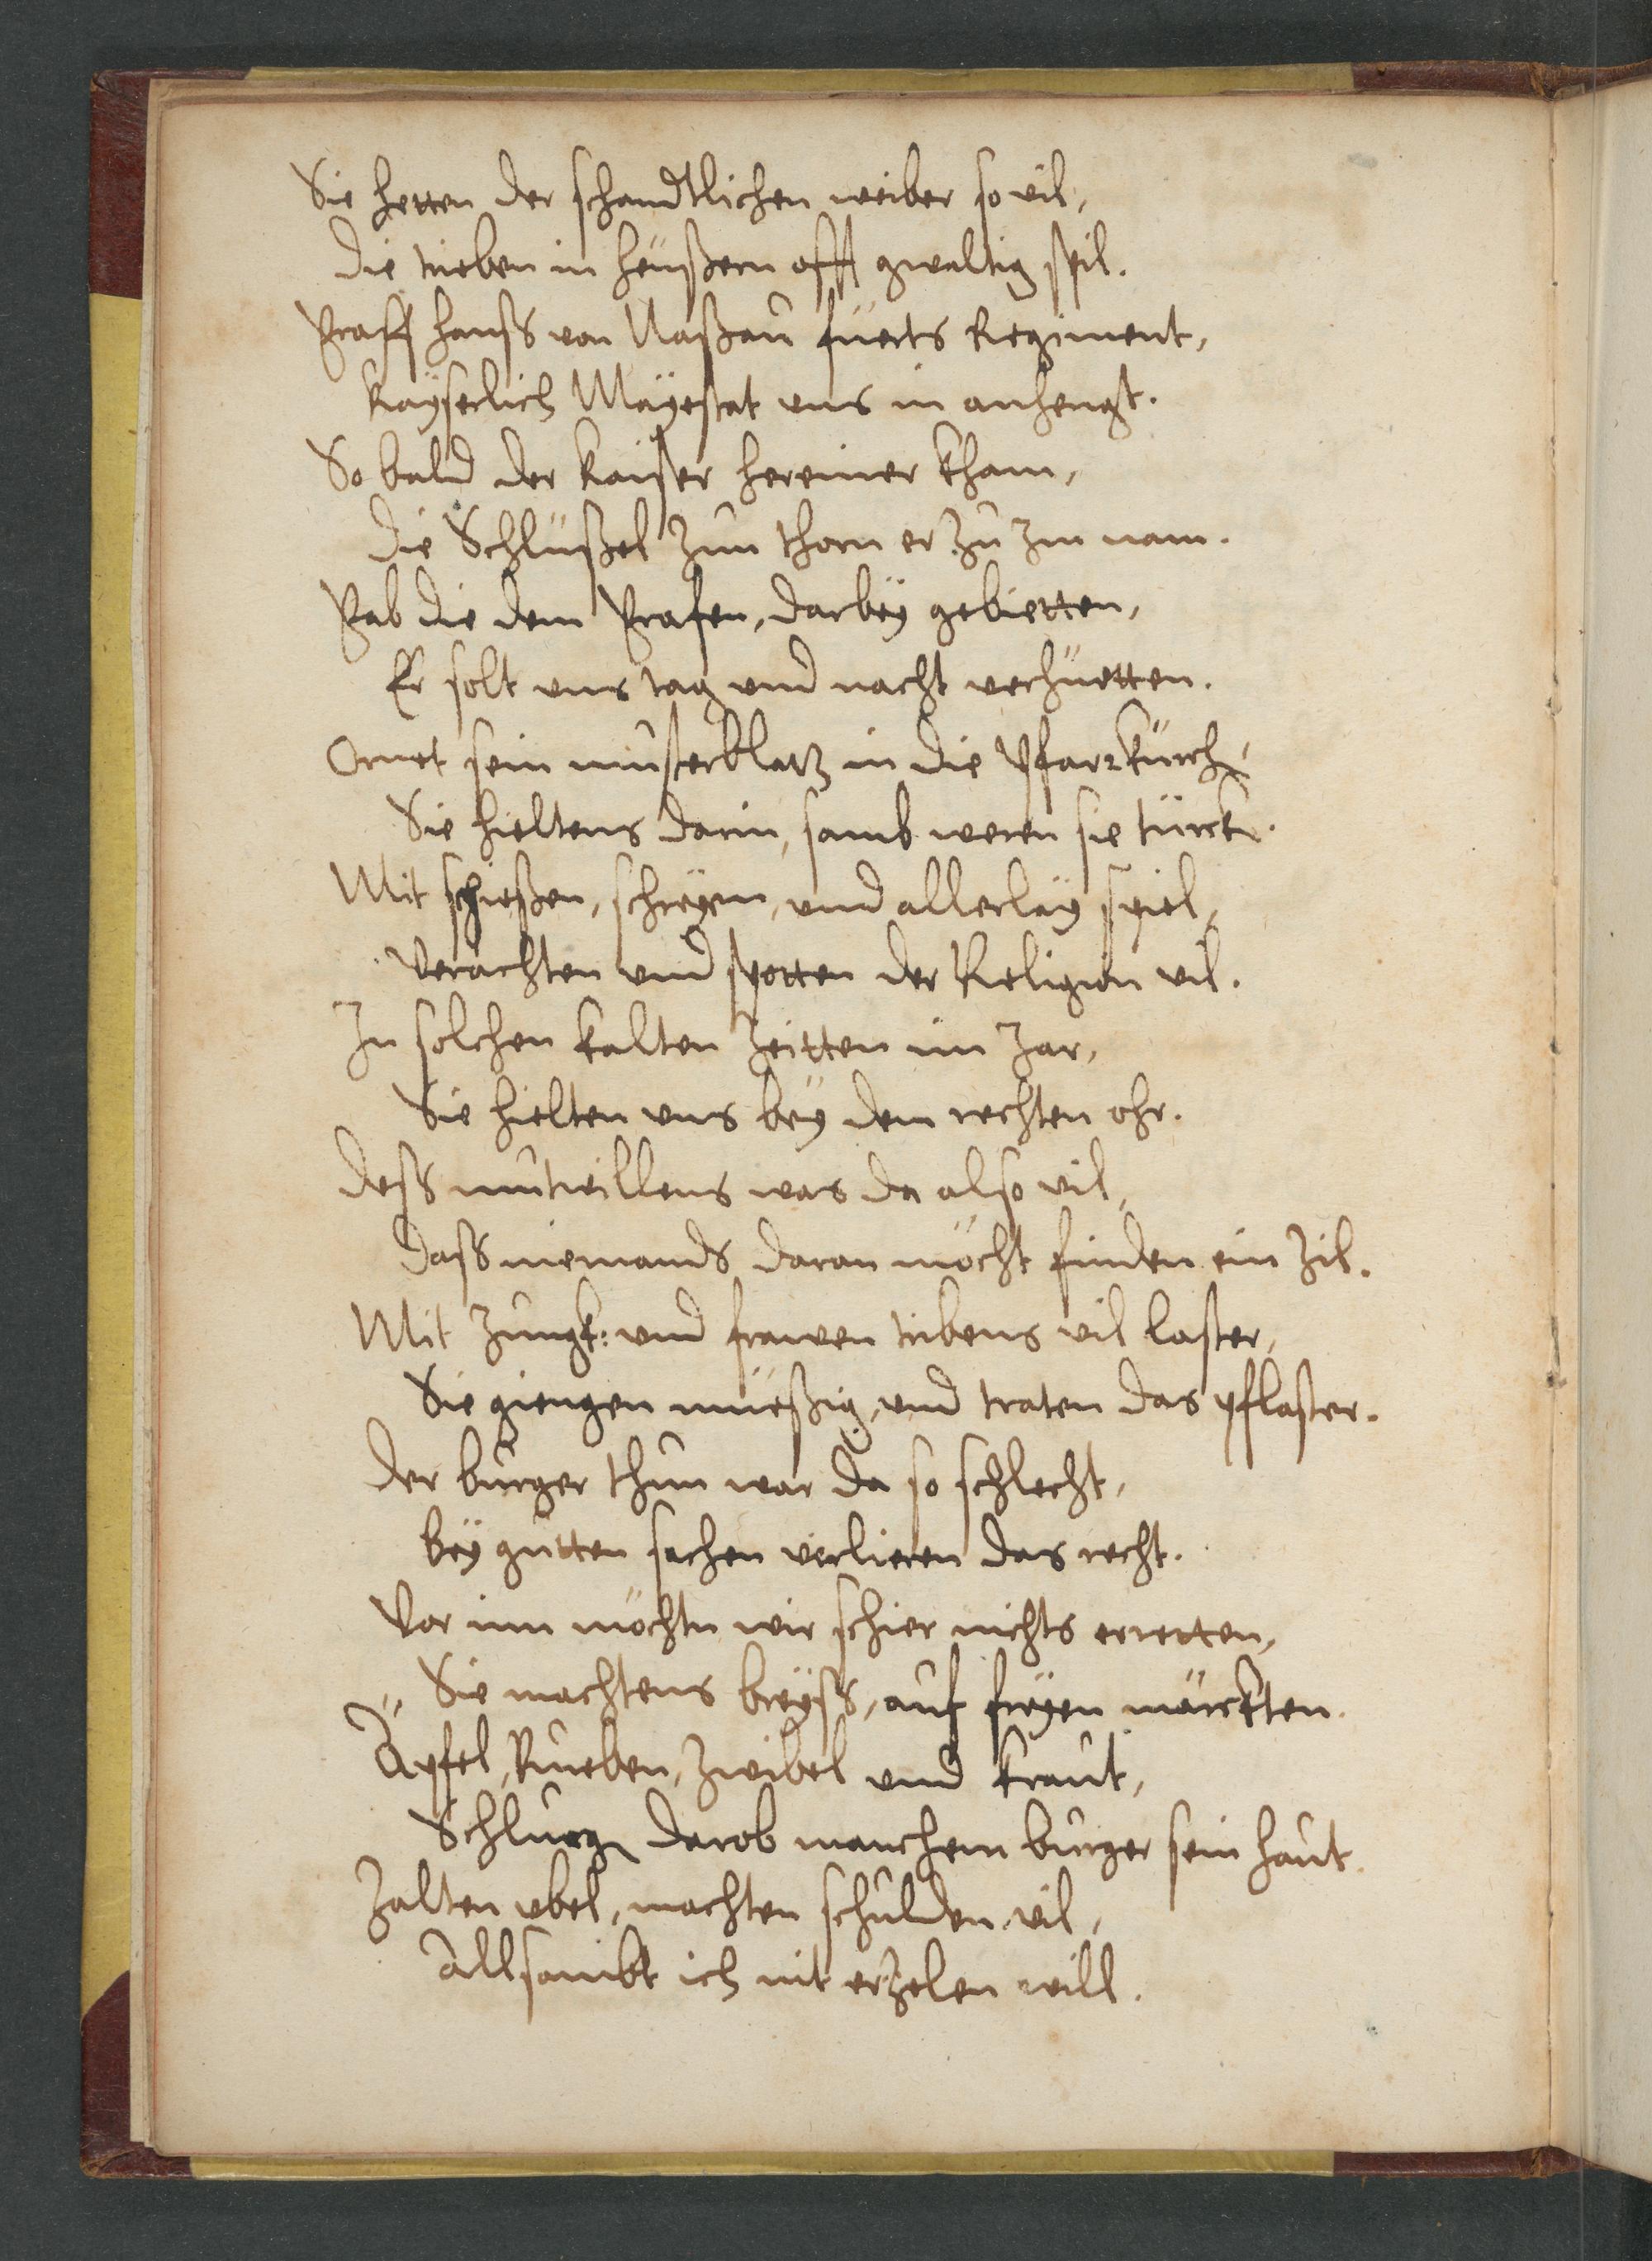 Sie hetten der schandtlichen weiber so vil,
die trieben in heüßern offt gwaltig spil.
Graff Hanß von Naßaü füerts Regiment,
Kayserlich Mayestat vns in anhengt.
So bald der Kaiser hereiner kham,
die Schlüßel zum thorn er zü Im nam.
Gab die dem Grafen, darbey gebietten,
Er solt vns tag vnd nacht verhüetten.
Ornet sein müsterblatz in die Pfarrkürch,
Sie hieltens darin, samb weren sie türck.
Mit schießen, schreyen, vnd allerlay spiel,
Verachten vnd spotten der Religion vil.
In solchen kalten Zeitten im Jar,
Sie hielten vns bey dem rechten ohr.
deß mutwillens was da also vil,
Daß niemands daran möcht finden ein Zil.
Mit Jungk: vnd frawen tribens vil laster,
Sie giengen müeßig, vnd traten das pflaster.
der burger thun war da so schlecht,
bey gutten sachen verlieren das recht.
Vor inn möchtn wir schier nichts erretten,
Sie machtens breyß, auf freyen märckten.
Äpfel, Rueben, Zwibel vnd kraut,
Schlueg darob manchem burger sein haut.
Zalten vbel, machten schulden vil,
Allsambt ich nit erzelen will.